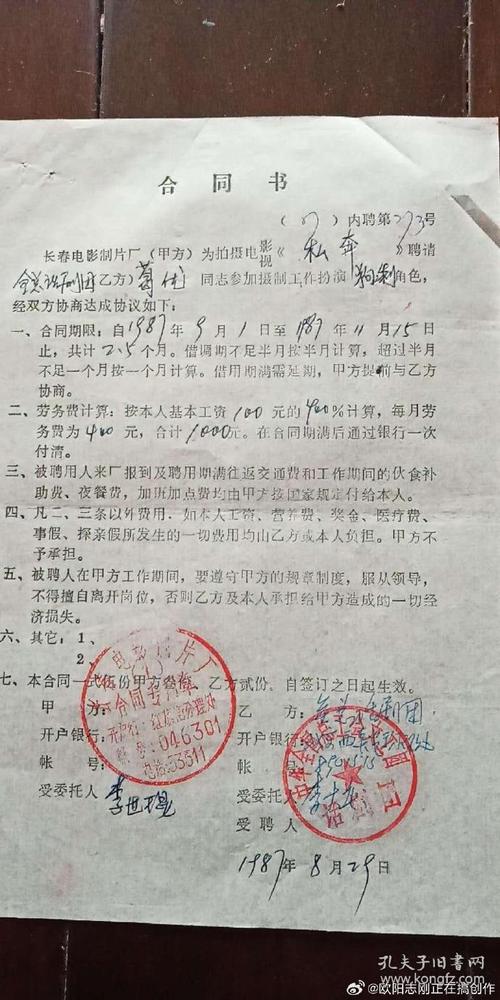 合同书
(87)内聘第273号
长春电影制片厂(甲方)为拍摄电影视《私奔》聘请
全总话剧团乙方)葛优 同志参加摄制工作扮演 角色,
经双方协商达成协议如下:
一、合同期限:自1987年9月1日至1987年11月15日
止,共计2.5个月。借调期不足半月按半月计算,超过半月
不足一个月按一个月计算。借用期满需延期,甲方提前与乙方
协商。
二、劳务费计算:按本人基本工资100元的400%计算,每月劳
务费为400元,合计1000元。在合同期满后通过银行一次
付清。
三、被聘用人来厂报到及聘用期满往返交通费和工作期间的伙食补
助费、夜餐费,加班加点费均由甲方按国家规定付给本人。
四、凡二、三条以外费用.如本人工资、营养费、奖金、医疗费、
事假、探亲假所发生的一切费用均由乙方或本人负担。甲方不
予承担。
五、被聘人在甲方工作期间,要遵守甲方的规章制度,服从领导,
不得擅自离开岗位,否则乙方及本人承担给甲方造成的一切经
济损失。
六、其它:1、
2、
七、本合同一式伍份甲方叁份,乙方贰份。自签订之日起生效。
甲方:
乙方:全总话剧团
开户银行:
开户银行:
帐号:
帐号:
受委托人
受委托人
受聘人
1987年8月29日
长春电影制片厂
合同专用章
046301
电话53311
话剧团
孔夫子旧书网
@欧阳志刚正在搞创作